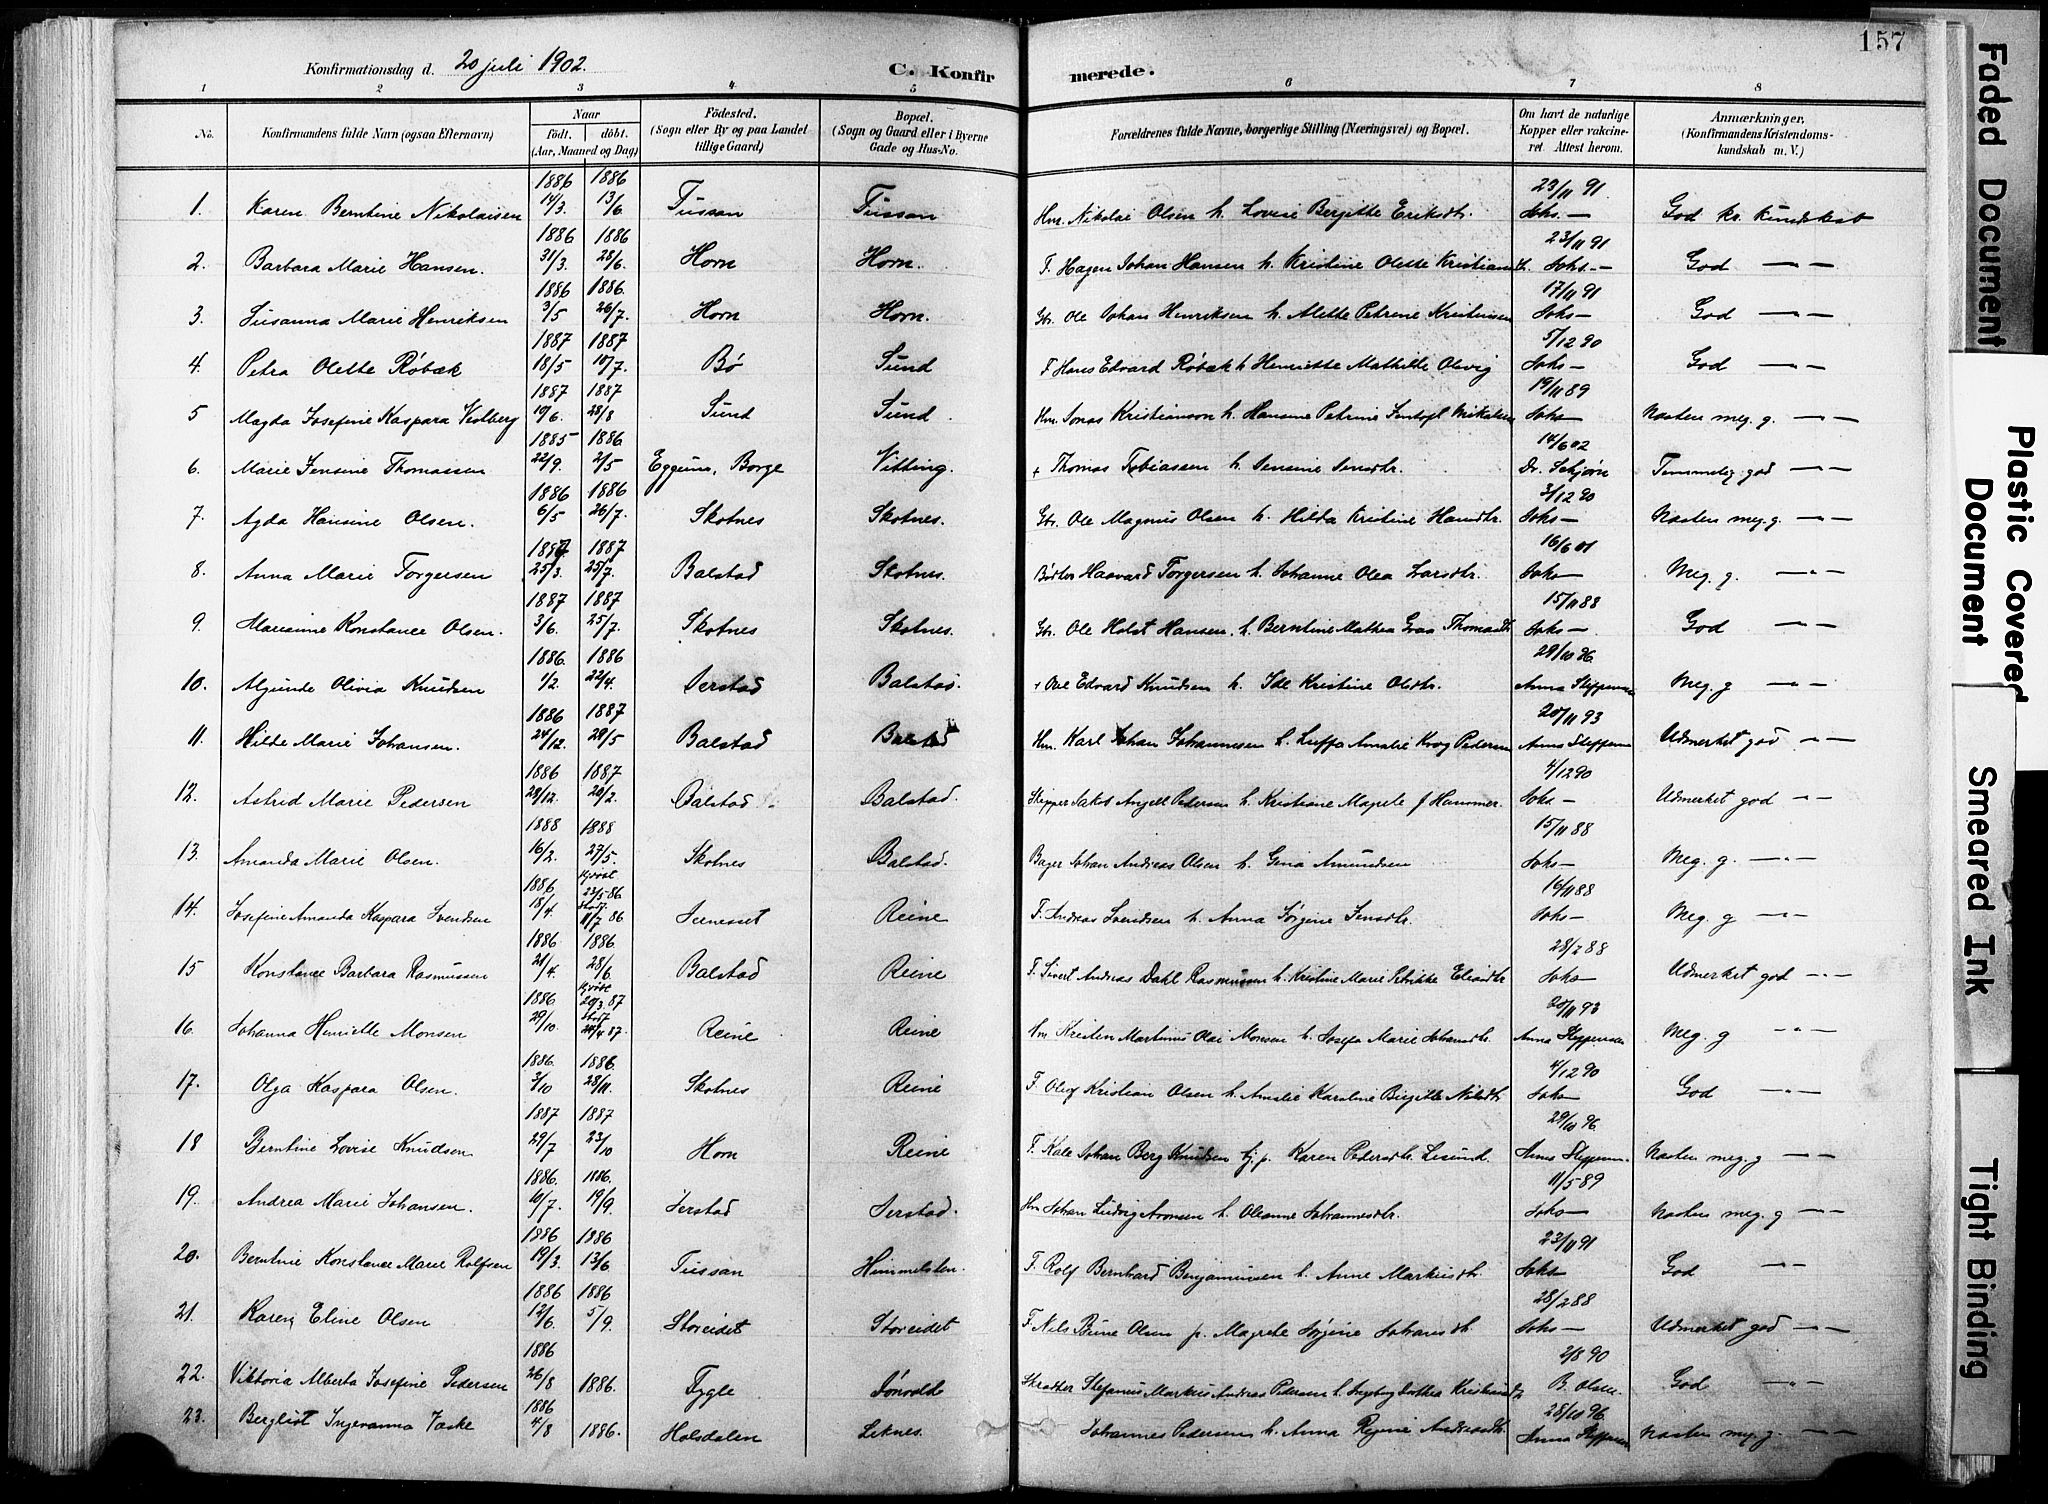 157
Konfirmationsdag d. 20 juli 1902.
C. Konfirmerede.
1 2 3 4 5 6 7 8
No.
Konfirmandens fulde Navn (ogsaa Efternavn)
Naar
født. døbt.
(Aar, Maaned og Dag)
Fødested.
(Sogn eller By og paa Landet
tillige Gaard)
Bopæl.
(Sogn og Gaard eller i Byerne
Gade og Hus-No.
Forældrenes fulde Navne, borgerlige Stilling (Næringsvei) og Bopæl.
Om havt de naturlige
Kopper eller vakcine-
ret Attest herom.
Anmærkninger,
(Konfirmandens Kristendoms-
kundskab m. V.)
1886 1886 23/11 91
1. Karen Berntine Nikolaisen 14/3. 13/6 Tussan Tussan Hm. Nikolai Olsen h. Lovise Bergitte Eriksdtr. Soks — God kr. kundskab
1886 1886 23/11 91
2. Barbara Marie Hansen. 31/3. 28/6. Horn Horn. F. Hagen Johan Hansen h. Kristine Olette Soks — God — " —
1886 1886. 17/11 91
3. Susanna Marie Henriksen 3/5 26/7. Horn Horn. Gbr. Ole Johan Henriksen h. Alette Petrine Kristensen Soks — God — " —
1887 1887 5/12 90
4. Petra Olette Røbæk 18/5 10/7. Bø Sund F Hans Edvard Røbæk h Henriette Mathilde Olsvig Soks — God — " —
1887 1887 19/11 89
5 Magda Josefine Kaspara Vestberg 19/6. 28/8 Sund Sund. Hm. Jonas Kristianson h. Hansine Petrine Soks — Næsten meg. g. — " —
1885 1886 14/6 02
6. Marie Jensine Thomassen 22/9. 2/5 Eggum, Borge Vitting. + Thomas Tobiassen h. Jensine Jensdtr. Dr. Schjørn Temmelig god — " —
1886 1886 3/12 90
7. Agda Hansine Olsen. 6/5 26/7. Skotnes Skotnes. Gbr. Ole Magnus Olsen h. Hilda Kristine Hansdtr. Soks — Næsten meg. g. — " —
1887 1887 16/6 01
8. Anna Marie Torgersen 25/3. 25/7. Balstad Skotnes. Bødker Haavard Torgersen h. Johanne Olea Larsdtr. Soks — Meg. g. — " —
1887 1887 15/11 88
9. Marianne Konstance Olsen. 3/6. 25/7. Skotnes Skotnes. Gbr. Ole Holst Hansen. h. Berntine Mathea Graa Thomasdtr Soks — God — " —
1886. 1886 29/10 96
10. Algunde Olivia Knudsen 1/2. 22/4. Jerstad Balstad. + Ole Edvard Knudsen h. Ide Kristine Olsdtr. Anna Steffensen Meg. g — " —
1886 1887 20/11 93
11. Hilde Marie Johansen. 24/12. 29/5 Balstad Balstad Hm. Karl Johan Johannesen h. Luffa Amalie Krog Pedersen Anna Steffensen Udmerket god — " —
1886 1887 4/12 90
12. Astrid Marie Pedersen 29/12. 20/2. Balstad. Balstad. Skipper Jakob Angell Pedersen h. Kristiane Magrete f Hammer. Soks — Udmerket god — " —
1888 1888 15/11 88
13. Amanda Marie Olsen. 16/2. 27/5. Skotnes Balstad. Bager Johan Andreas Olsen h. Gina Amundsen Soks — Meg. g. — " —
1886 hjdøbt 23/5 86 16/11 88
14. Josefine Amanda Kaspara Svendsen 18/4. stadf. 11/7 86 Reine F. Andreas Svendsen h. Anna Jørgine Jensdtr. Soks — Meg. g — " —
1886 1886. 28/2 88
15 Konstance Barbara Rasmussen 21/4. 28/6. Balstad Reine F. Sivert Andreas Dahl Rasmussen h. Kristine Marie Petrikke Eliasdtr Soks — Udmerket god — " —
1886 hjdøbt 20/3 87 20/11 93
16. Johanna Henriette Monsen 29/10. stadf. 24/4 87. Reine Reine Hm Kristen Martinus Olai Monsen h. Josefa Marie Johansdtr. Anna Steffensen Meg. g — " —
1886. 1886. 4/12 90
17. Olga Kaspara Olsen. 3/10 28/11. Skotnes Reine F. Oluf Kristian Olsen h. Amalie Karoline Birgitte Nilsdtr Soks God — " —
1887 1887 29/10 96
18 Berntine Lovise Knudsen 29/7 23/10 Horn Reine F. Kale Johan Berg Knudsen tj. p. Karen Pedersdtr. Lisund. Anna Steffensen. Næsten meg. g — " —
1886. 1886. 11/5 89
19. Andrea Marie Johansen. 10/7. 19/9. Jerstad Jerstad. Hm Johan Ludvig Aronsen h. Oleanne Johannesdtr. Soks — Næsten meg. g — " —
1886 1886 23/11 91
20. Berntine Konstance Marie Rolfsen 19/3. 13/6 Tussan Himmelsten. F. Rolf Bernhard Benjaminsen h. Anne Markusdtr. Soks — God — " —
1886 1886 28/2 88
21. Karen Eline Olsen 12/6. 5/9. Storeidet Storeidet F Nils Bune Olsen p. Magrete Jørgine Johansdtr. Soks — Udmerket god — " —
1886 2/8 90
22. Viktoria Alberta Josefine Pedersen 26/8 1886. Fygle Skrædder Stefanus Markus Andreas Pedersen h. Ingeborg Dothea Kristiansdtr B. Olsen. God — " —
1886 28/10 96
23. Bergliot Ingevanna Jaske 4/8 1886. Holsdalen Leknes. Johannes Pedersen h. Anna Regine Andreasdtr. Anna Steffensen Næsten meg. g. — " —
Faded Document
Plastic Covered
Document
Smeared Ink
Tight Binding